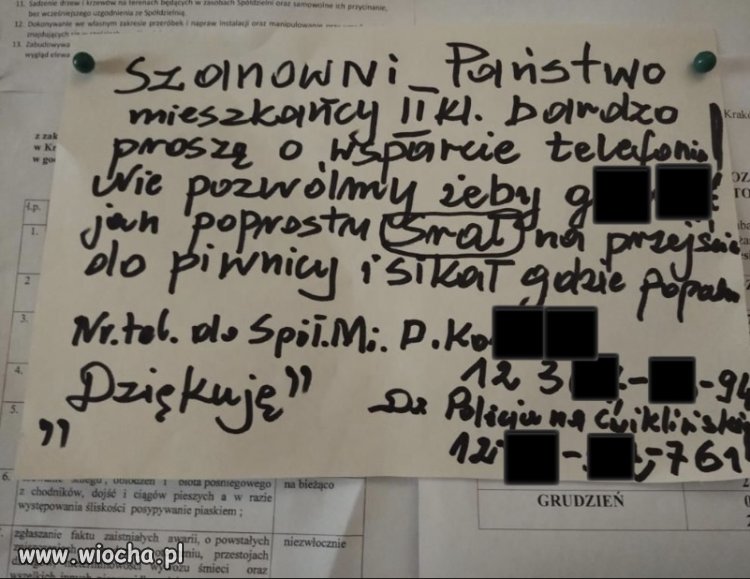 11. Sadzenie drzew i krzewów na terenach będących w zasobach Spółdzielni oraz samowolne ich przycinanie,
bez wcześniejszego uzgodnienia ze Spółdzielnią.
12. Dokonywanie we własnym zakresie przeróbek i napraw instalacji oraz manipulowanie
znajdujących się
13. Zabudowywa
wygląd elewa
Szanowni Państwo
mieszkańcy II kl. bardzo
proszę o wsparcie telefonic!
Nie pozwólmy żeby g
jan poprostu srał na przejście
do piwnicy i sikał gdzie popadn
Nr. tel. do Spił. Mi. P. Ko
12 3 - -94
„Dziękuję”
Do Policja na ćwiklińskiej
12 - -761
z zak
w Kr
w go
Ł.p.
1.
2
3.
4.
5.
6.
z chodników, dojść i ciągów pieszych a w razie
występowania śliskości posypywanie piaskiem ;
na bieżąco
GRUDZIEŃ
zgłaszanie faktu zaistniałych awarii, o powstałych
niezwłocznie
przestojach
śmieci oraz
www.wiocha.pl